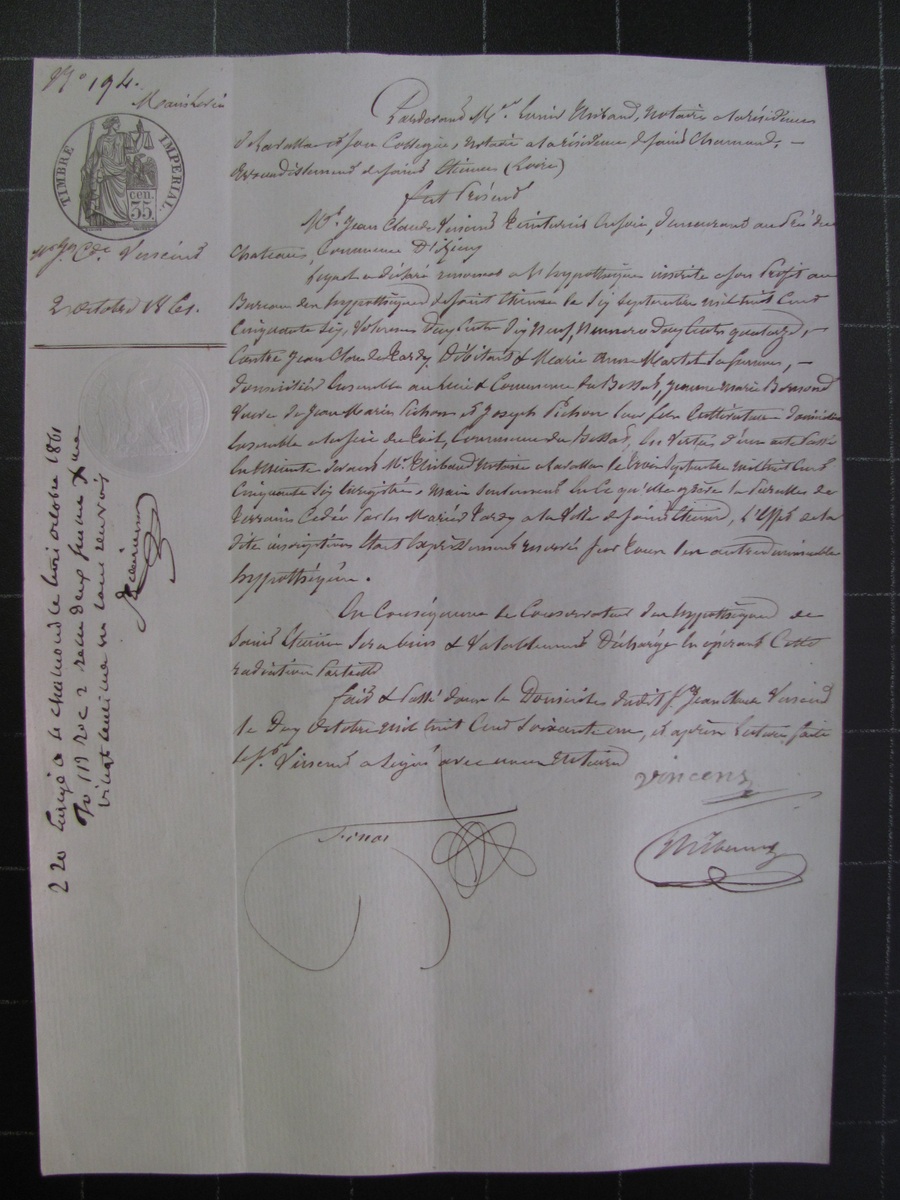 N° 194.
Mainlevée
TIMBRE IMPERIAL.
35 cen.
par Jn Cde Vincent
2 octobre 1861.
Pardevant Me Louis Thibaud, Notaire à la résidence
de Lavalla et son Collègue, Notaire à la résidence de Saint Chamond, –
Arrondissement de Saint Etienne (Loire)
fut Présent
Mr Jean Claude Vincent Teinturier en soie, demeurant au Pré du
Chateau Commune d'Izieux
Lequel a déclaré renoncer à l'hypothèque inscrite à son Profit au
Bureau des hypothèques de Saint Etienne le Six Septembre mil huit Cent
Cinquante Six, Volume Deux Cent Dix Neuf, Numéro Deux Cent quatorze, –
Contre Jean Claude Tardy, Débitant & Marie Anne Matrat sa femme, –
domiciliés Ensemble au lieu & Commune du Bessat, Jeanne Marie Bonnond
Veuve de Jean Marie Pichon et Joseph Pichon son fils Cultivateur domiciliés
Ensemble au lieu du Toil, Commune du Bessat, En Vertu d'un acte Passé
En Minute devant Me Thibaud Notaire à Lavalla le trois Septembre mil huit Cent
Cinquante Six Enregistré, Mais Seulement En Ce qu'elle grève la Parcelle de
terrain Cédée Par les Mariés Tardy à la Ville de Saint Etienne, L'Effet de la
dite inscription étant Expressément réservé Sur tous les autres immeubles
hypothéqués.
En Conséquence le Conservateur des hypothèques de
Saint Etienne Sera bien & Valablement Déchargé En opérant Cette
radiation Partielle
Fait & Passé dans le Domicile dudit Sr Jean Claude Vincent
le Deux Octobre mil huit Cent Soixante un, et après Lecture faite
le Sr Vincent a Signé avec nous Notaires
vincent
Finaz
Thibaud
220 Enregé à St Chamond le trois octobre 1861
Fo 119 Ro C 2 reçu deux francs &
vingt centimes sans renvois